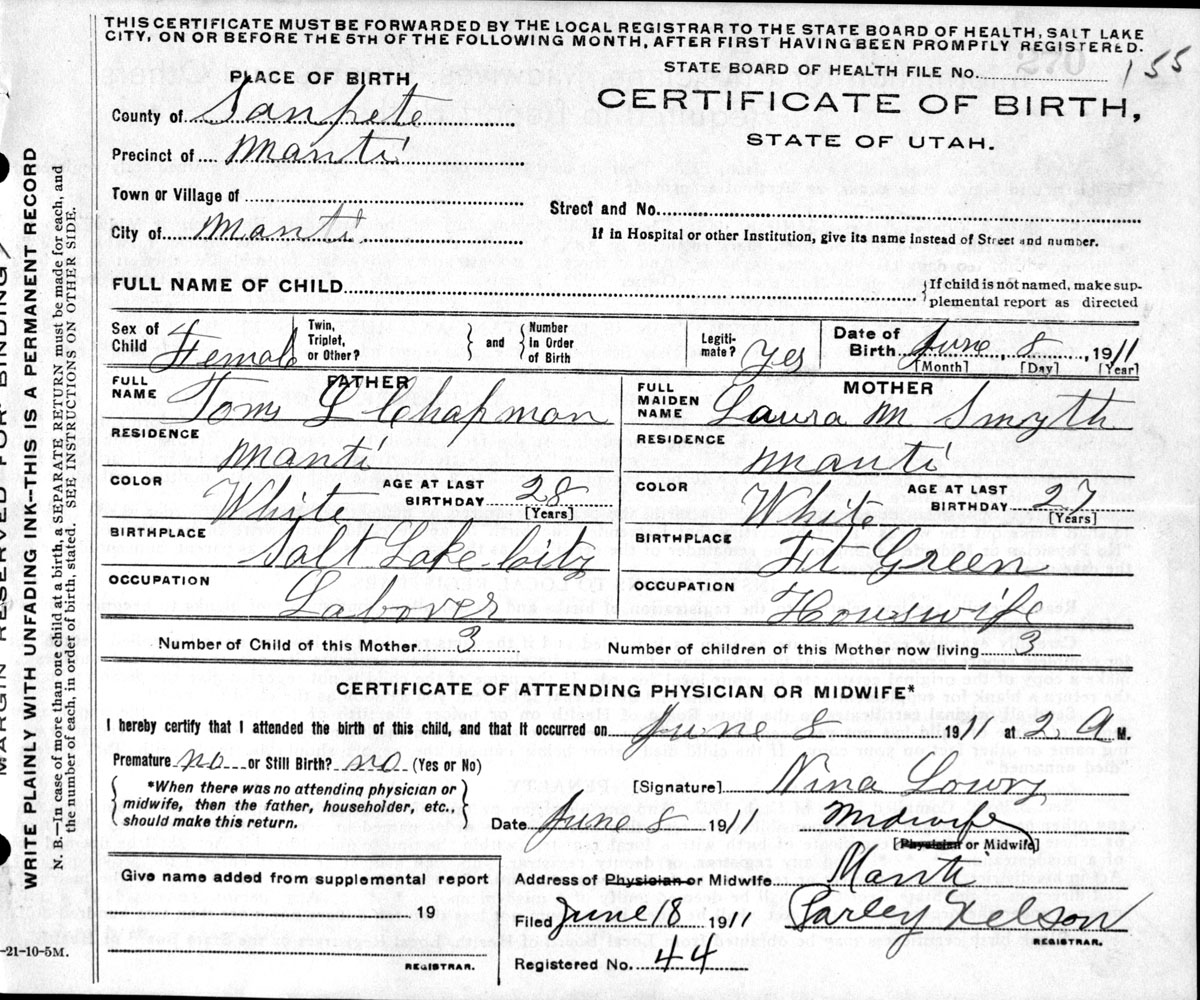 THIS CERTIFICATE MUST BE FORWARDED BY THE LOCAL REGISTRAR TO THE STATE BOARD OF HEALTH, SALT LAKE
CITY, ON OR BEFORE THE 5TH OF THE FOLLOWING MONTH, AFTER FIRST HAVING BEEN PROMPTLY REGISTERED.
STATE BOARD OF HEALTH FILE No. 155
270
PLACE OF BIRTH
CERTIFICATE OF BIRTH,
STATE OF UTAH.
County of Sanpete
Precinct of Manti
Town or Village of
Street and No.
City of Manti
If in Hospital or other Institution, give its name instead of Street and number.
FULL NAME OF CHILD
If child is not named, make sup-
plemental report as directed
Sex of Child Female Twin, Triplet, or Other? and Number in Order of Birth Legiti- mate? Yes Date of Birth June, 8, 1911
[Month] [Day] [Year]
FATHER MOTHER
FULL NAME Tom L Chapman FULL MAIDEN NAME Laura M. Smyth
RESIDENCE Manti RESIDENCE Manti
COLOR White AGE AT LAST BIRTHDAY 28 [Years] COLOR White AGE AT LAST BIRTHDAY 27 [Years]
BIRTHPLACE Salt Lake City BIRTHPLACE Ft Green
OCCUPATION Laborer OCCUPATION Houswife
Number of Child of this Mother 3 Number of children of this Mother now living 3
CERTIFICATE OF ATTENDING PHYSICIAN OR MIDWIFE*
I hereby certify that I attended the birth of this child, and that it occurred on June 8 1911 at 2 A M.
Premature no or Still Birth? no (Yes or No)
*When there was no attending physician or
midwife, then the father, householder, etc.,
should make this return.
[Signature] Nina Lowry
Date June 8 1911 Midwife
[Physician or Midwife]
Give name added from supplemental report
19
REGISTRAR.
Address of Physician or Midwife Manti
Filed June 18 1911 Parley Nelson
REGISTRAR.
Registered No. 44
-21-10-5M.
MARGIN RESERVED FOR BINDING
WRITE PLAINLY WITH UNFADING INK--THIS IS A PERMANENT RECORD
N. B.—In case of more than one child at a birth, a SEPARATE RETURN must be made for each, and
the number of each, in order of birth, stated. SEE INSTRUCTIONS ON OTHER SIDE.